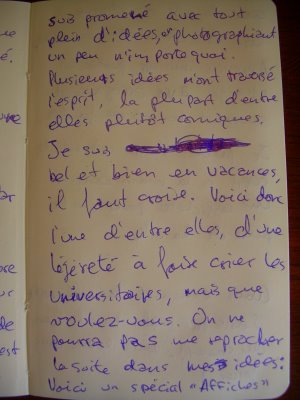 suis promené avec tout
plein d'idées et photographiant
un peu n'importe quoi.
Plusieurs idées m'ont traversé
l'esprit, la plupart d'entre
elles plutôt comiques.
Je suis
bel et bien en vacances,
il faut croire. Voici donc
l'une d'entre elles, d'une
légèreté à faire crier les
universitaires, mais que
voulez-vous. On ne
pourra pas me reprocher
la suite dans mes idées:
Voici un spécial "Affiches"